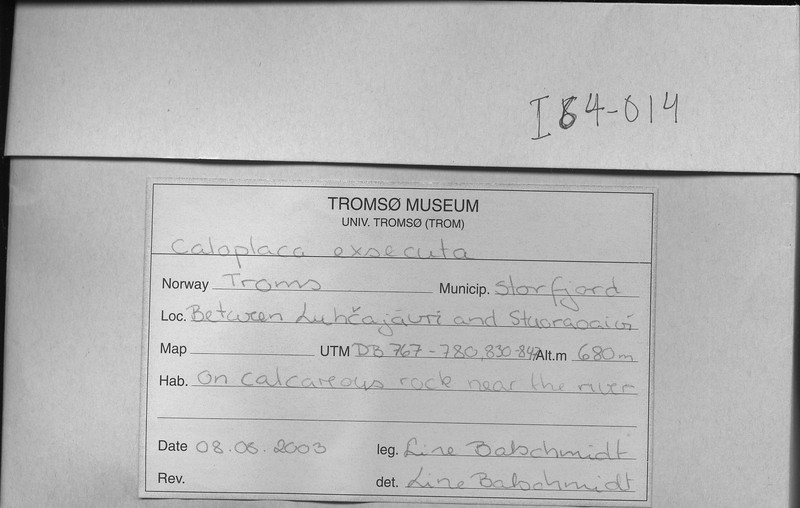 I64-014
TROMSØ MUSEUM
UNIV. TROMSØ (TROM)
Caloplaca exsecuta
Norway Troms Municip. Storfjord
Loc. Between Luhčajávri and
Map UTM DB 767-780,830-847 Alt.m 680m
Hab. On calcareous rock near the river
Date 08.06.2003 leg. Line Balschmidt
Rev. det. Line Balschmidt